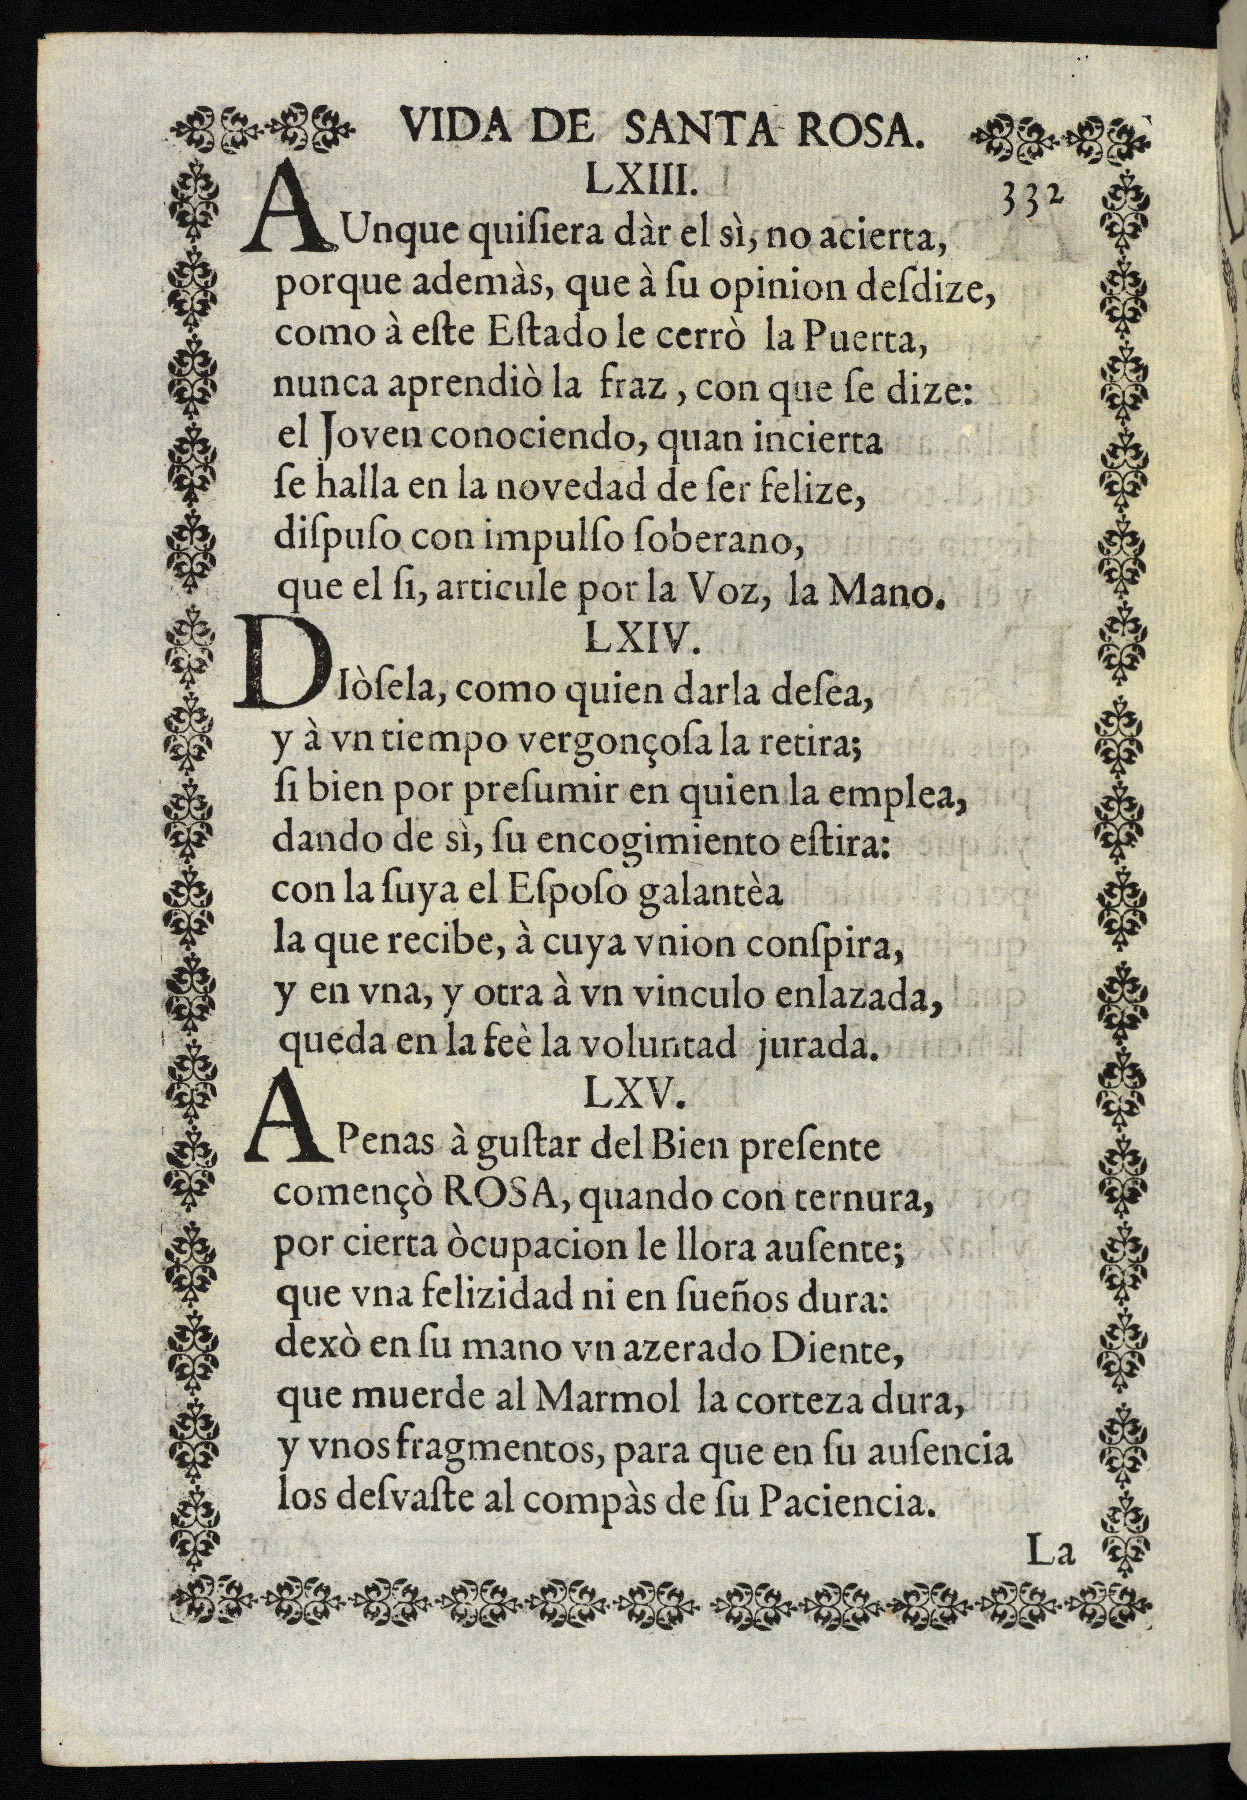 VIDA DE SANTA ROSA.
LXIII.
332
AUnque quiſiera dàr el sì, no acierta,
porque ademàs, que à ſu opinion deſdize,
como à eſte Eſtado le cerrò la Puerta,
nunca aprendiò la fraz, con que ſe dize:
el Joven conociendo, quan incierta
ſe halla en la novedad de ſer felize,
diſpuſo con impulſo ſoberano,
que el ſi, articule por la Voz, la Mano.
LXIV.
DIòſela, como quien darla deſea,
y à vn tiempo vergonçoſa la retira;
ſi bien por preſumir en quien la emplea,
dando de sì, ſu encogimiento eſtira:
con la ſuya el Eſpoſo galantèa
la que recibe, à cuya vnion conſpira,
y en vna, y otra à vn vinculo enlazada,
queda en la feè la voluntad jurada.
LXV.
APenas à guſtar del Bien preſente
començò ROSA, quando con ternura,
por cierta òcupacion le llora auſente;
que vna felizidad ni en ſueños dura:
dexò en ſu mano vn azerado Diente,
que muerde al Marmol la corteza dura,
y vnos fragmentos, para que en ſu auſencia
los deſvaſte al compàs de ſu Paciencia.
La